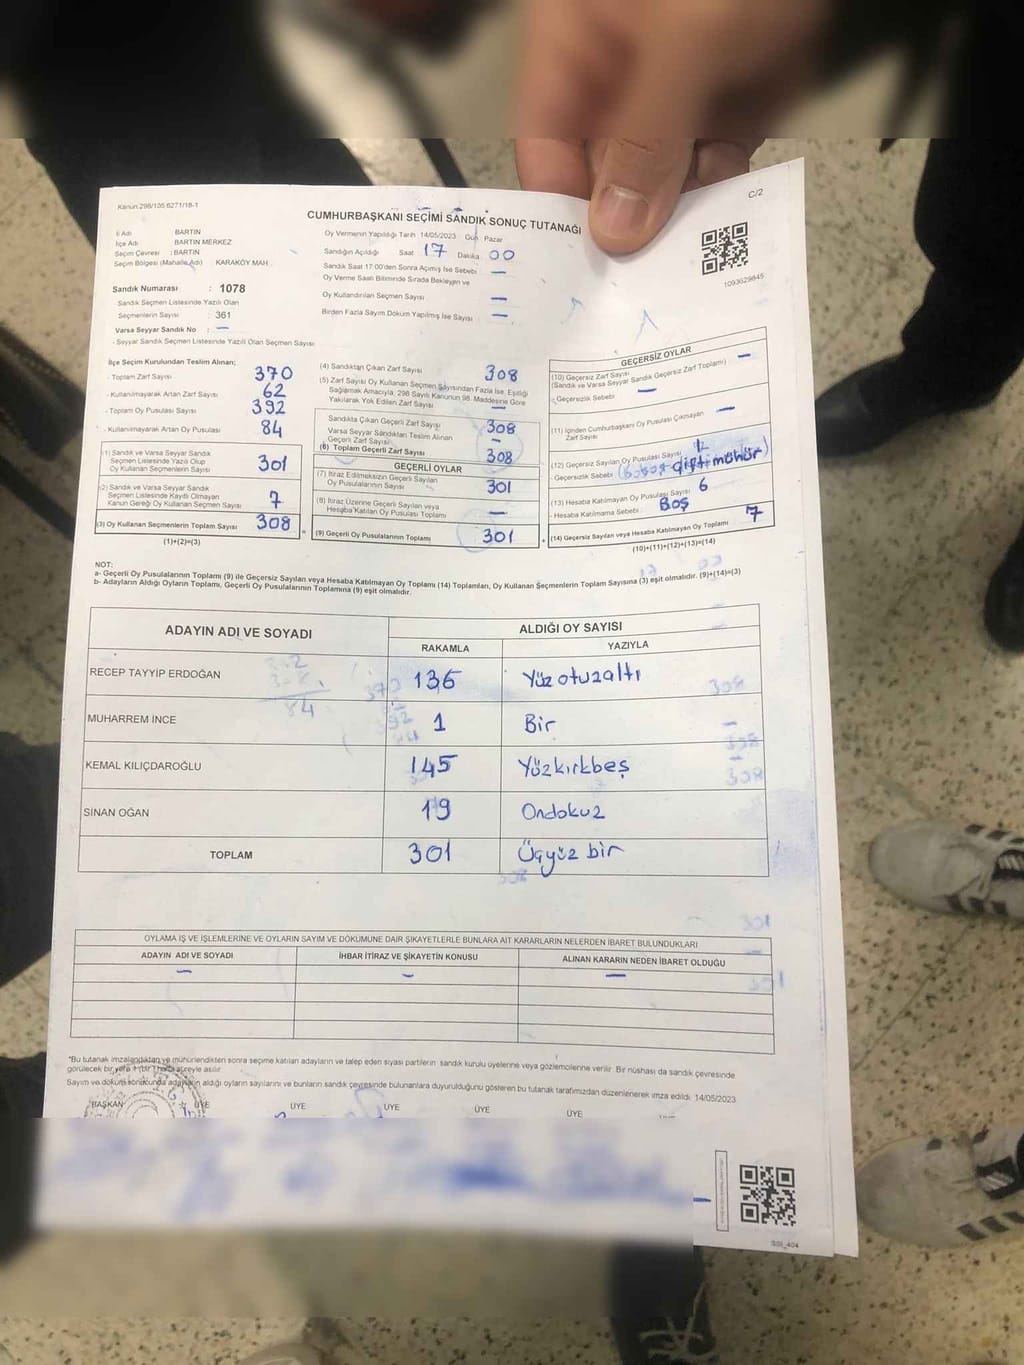 C/2
Kanun:298/105.6271/18-1
CUMHURBAŞKANI SEÇİMİ SANDIK SONUÇ TUTANAĞI
İl Adı : BARTIN
İlçe Adı : BARTIN MERKEZ
Seçim Çevresi : BARTIN
Seçim Bölgesi (Mahalle Adı) : KARAKÖY MAH.
Sandık Numarası : 1078
Sandık Seçmen Listesinde Yazılı Olan
Seçmenlerin Sayısı : 361
Varsa Seyyar Sandık No : —
- Seyyar Sandık Seçmen Listesinde Yazılı Olan Seçmen Sayısı
Oy Vermenin Yapıldığı Tarih 14/05/2023 Gün Pazar
Sandığın Açıldığı Saat 17 Dakika 00
Sandık Saat 17:00'den Sonra Açılmış İse Sebebi —
Oy Verme Saati Bitiminde Sırada Bekleyen ve
Oy Kullandırılan Seçmen Sayısı —
Birden Fazla Sayım Döküm Yapılmış İse Sayısı —
1093629845
İlçe Seçim Kurulundan Teslim Alınan;
- Toplam Zarf Sayısı 370
- Kullanılmayarak Artan Zarf Sayısı 62
- Toplam Oy Pusulası Sayısı 392
- Kullanılmayarak Artan Oy Pusulası 84
(1) Sandık ve Varsa Seyyar Sandık
Seçmen Listesinde Yazılı Olup
Oy Kullanan Seçmenlerin Sayısı 301
(2) Sandık ve Varsa Seyyar Sandık
Seçmen Listesinde Kayıtlı Olmayan
Kanun Gereği Oy Kullanan Seçmen Sayısı 7
(3) Oy Kullanan Seçmenlerin Toplam Sayısı 308
(1)+(2)=(3)
(4) Sandıktan Çıkan Zarf Sayısı 308
(5) Zarf Sayısı Oy Kullanan Seçmen Sayısından Fazla İse, Eşitliği
Sağlamak Amacıyla, 298 Sayılı Kanunun 98. Maddesine Göre
Yakılarak Yok Edilen Zarf Sayısı —
Sandıkta Çıkan Geçerli Zarf Sayısı 308
Varsa Seyyar Sandıktan Teslim Alınan
Geçerli Zarf Sayısı —
(6) Toplam Geçerli Zarf Sayısı 308
GEÇERLİ OYLAR
(7) İtiraz Edilmeksizin Geçerli Sayılan
Oy Pusulalarının Sayısı 301
(8) İtiraz Üzerine Geçerli Sayılan veya
Hesaba Katılan Oy Pusulası Toplamı —
(9) Geçerli Oy Pusulalarının Toplamı 301
GEÇERSİZ OYLAR
(10) Geçersiz Zarf Sayısı —
(Sandık ve Varsa Seyyar Sandık Geçersiz Zarf Toplamı)
- Geçersizlik Sebebi —
(11) İçinden Cumhurbaşkanı Oy Pusulası Çıkmayan —
Zarf Sayısı
(12) Geçersiz Sayılan Oy Pusulası Sayısı
- Geçersizlik Sebebi çift mühür
(13) Hesaba Katılmayan Oy Pusulası Sayısı 6
- Hesaba Katılmama Sebebi : Boş
(14) Geçersiz Sayılan veya Hesaba Katılmayan Oy Toplamı 7
(10)+(11)+(12)+(13)=(14)
NOT:
a- Geçerli Oy Pusulalarının Toplamı (9) ile Geçersiz Sayılan veya Hesaba Katılmayan Oy Toplamı (14) Toplamları, Oy Kullanan Seçmenlerin Toplam Sayısına (3) eşit olmalıdır. (9)+(14)=(3)
b- Adayların Aldığı Oyların Toplamı, Geçerli Oy Pusulalarının Toplamına (9) eşit olmalıdır.
ADAYIN ADI VE SOYADI ALDIĞI OY SAYISI
RAKAMLA YAZIYLA
RECEP TAYYİP ERDOĞAN 136 Yüz otuzaltı
MUHARREM İNCE 1 Bir
KEMAL KILIÇDAROĞLU 145 Yüzkırkbeş
SİNAN OĞAN 19 Ondokuz
TOPLAM 301 Üçyüz bir
OYLAMA İŞ VE İŞLEMLERİNE VE OYLARIN SAYIM VE DÖKÜMÜNE DAİR ŞİKAYETLERLE BUNLARA AİT KARARLARIN NELERDEN İBARET BULUNDUKLARI
ADAYIN ADI VE SOYADI İHBAR İTİRAZ VE ŞİKAYETİN KONUSU ALINAN KARARIN NEDEN İBARET OLDUĞU
— — —
*Bu tutanak imzalandıktan ve mühürlendikten sonra seçime katılan adayların ve talep eden siyasi partilerin sandık kurulu üyelerine veya gözlemcilerine verilir. Bir nüshası da sandık çevresinde
görülecek bir yere 1 (bir) hafta süreyle asılır.
Sayım ve döküm sonucunda adayların aldığı oyların sayılarını ve bunların sandık çevresinde bulunanlara duyurulduğunu gösteren bu tutanak tarafımızdan düzenlenerek imza edildi. 14/05/2023
BAŞKAN ÜYE ÜYE ÜYE ÜYE ÜYE